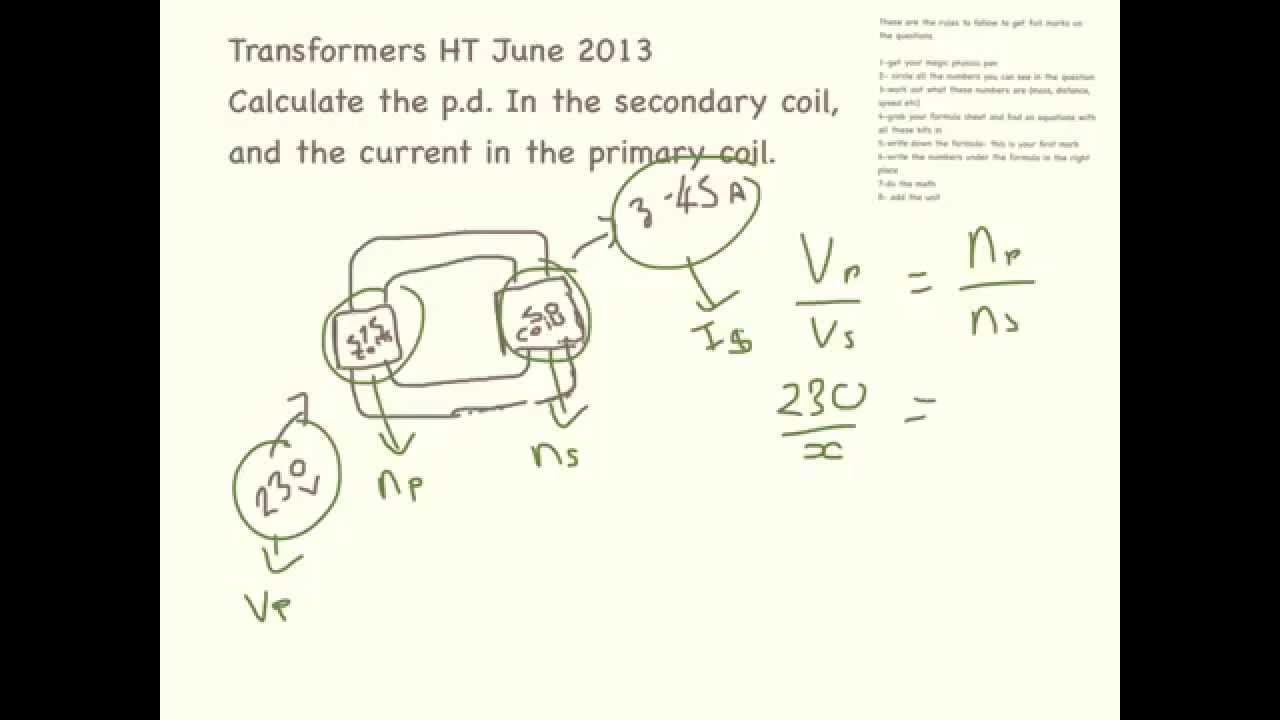 Transformers HT June 2013
Calculate the p.d. In the secondary coil,
and the current in the primary coil.
These are the rules to follow to get full marks on
the questions
1-get your magic physics pen
2- circle all the numbers you can see in the question
3-work out what these numbers are (mass, distance,
speed etc)
4-grab your formula sheet and find an equations with
all these bits in
5-write down the formula- this is your first mark
6-write the numbers under the formula in the right
place
7-do the math
8- add the unit
3.45A
Is
575
58
coil
230
V
Vp
np
ns
Vp = np
Vs ns
230 =
x